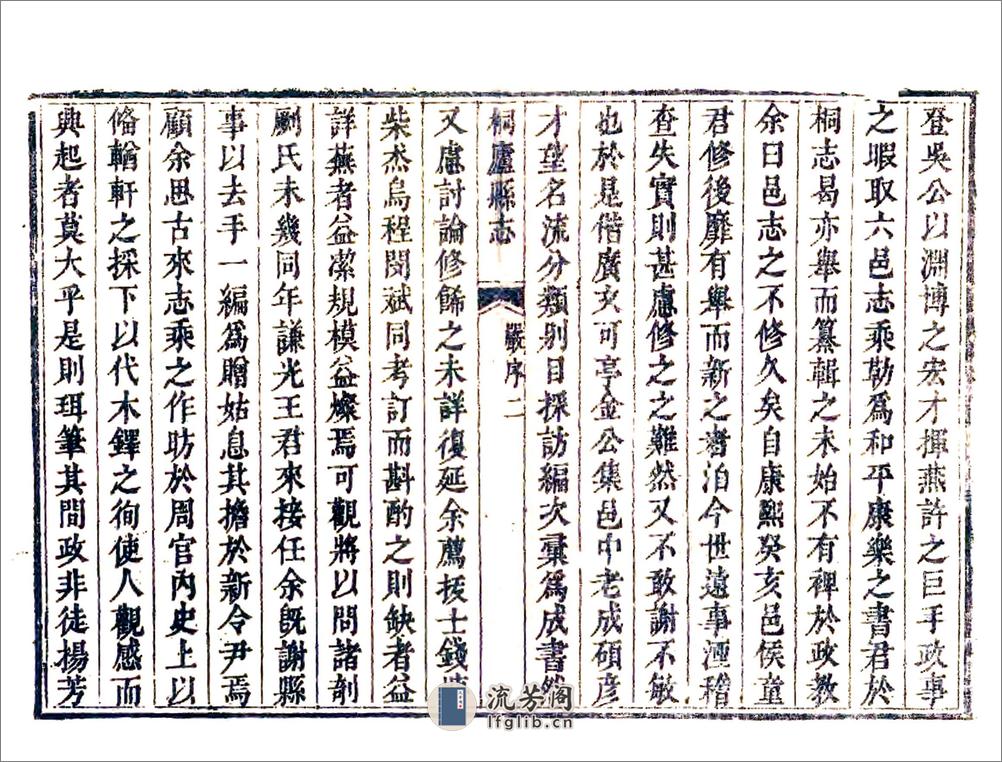 登吳公以淵博之宏才揮燕許之巨手政事
之暇取六邑志乘勒爲和平康樂之書君於
桐志曷亦舉而纂輯之未始不有裨於政教
余曰邑志之不修久矣自康熙癸亥邑侯童
君修後靡有舉而新之者洎今世遠事湮稽
查失實則甚慮修之之難然又不敢謝不敏
也於是偕廣文可亭金公集邑中老成碩彦
才望名流分類别目採訪編次彙爲成書然
桐廬縣志
嚴序
二
又慮討論修餙之未詳復延余薦拔士錢塘
柴杰烏程閔斌同考訂而斟酌之則缺者益
詳蕪者益潔規模益燦焉可觀將以問諸剞
劂氏未幾同年謙光王君來接任余旣謝縣
事以去手一編爲贈姑息其擔於新令尹焉
顧余思古來志乘之作昉於周官內史上以
俻輶軒之採下以代木鐸之徇使人觀感而
興起者莫大乎是則珥筆其間政非徒揚芳
流芳阁
lfglib.cn